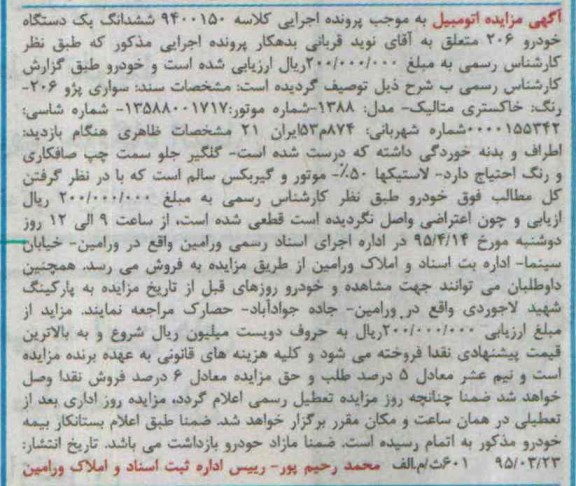 آگهی مزایده اتومبیل به موجب پرونده اجرایی کلاسه ۹۴۰۰۱۵۰ ششدانگ یک دستگاه
خودرو ۲۰۶ متعلق به آقای نوید قربانی بدهکار پرونده اجرایی مذکور که طبق نظر
کارشناس رسمی به مبلغ ۲۰۰/۰۰۰/۰۰۰ریال ارزیابی شده است و خودرو طبق گزارش
کارشناس رسمی ب شرح ذیل توصیف گردیده است: مشخصات سند: سواری پژو ۲۰۶-
رنگ: خاکستری متالیک- مدل: ۱۳۸۸-شماره موتور:۱۳۵۸۸۰۰۱۷۱۷- شماره شاسی:
۰۰۰۰۱۵۵۳۴۲شماره شهربانی: ۸۷۴م۵۳ایران ۲۱ مشخصات ظاهری هنگام بازدید:
اطراف و بدنه خوردگی داشته که درست شده است- گلگیر جلو سمت چپ صافکاری
و رنگ احتیاج دارد- لاستیکها ۵۰٪- موتور و گیربکس سالم است که با در نظر گرفتن
کل مطالب فوق خودرو طبق نظر کارشناس رسمی به مبلغ ۲۰۰/۰۰۰/۰۰۰ ریال
ازیابی و چون اعتراضی واصل نگردیده است قطعی شده است، از ساعت ۹ الی ۱۲ روز
دوشنبه مورخ ۹۵/۴/۱۴ در اداره اجرای اسناد رسمی ورامین واقع در ورامین- خیابان
سینما- اداره بت اسناد و املاک ورامین از طریق مزایده به فروش می رسد. همچنین
داوطلبان می توانند جهت مشاهده و خودرو روزهای قبل از تاریخ مزایده به پارکینگ
شهید لاجوردی واقع در ورامین- جاده جوادآباد- حصارک مراجعه نمایند. مزاید از
مبلغ ارزیابی ۲۰۰/۰۰۰/۰۰۰ریال به حروف دویست میلیون ریال شروع و به بالاترین
قیمت پیشنهادی نقدا فروخته می شود و کلیه هزینه های قانونی به عهده برنده مزایده
است و نیم عشر معادل ۵ درصد طلب و حق مزایده معادل ۶ درصد فروش نقدا وصل
خواهد شد ضمنا چنانچه روز مزایده تعطیل رسمی اعلام گردد، مزایده روز اداری بعد از
تعطیلی در همان ساعت و مکان مقرر برگزار خواهد شد. ضمنا طبق اعلام بستانکار بیمه
خودرو مذکور به اتمام رسیده است. ضمنا مازاد خودرو بازداشت می باشد. تاریخ انتشار:
۹۵/۰۳/۲۳ ۶۰۱ث/م.الف محمد رحیم پور- رییس اداره ثبت اسناد و املاک ورامین